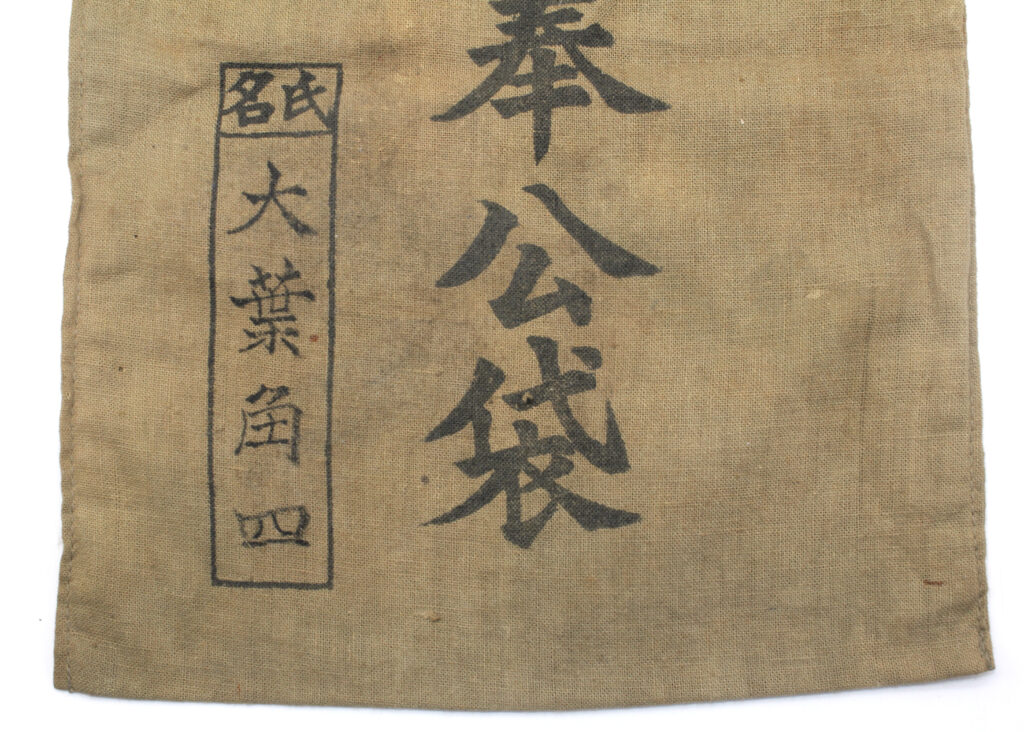 奉公袋
氏名
大葉角四